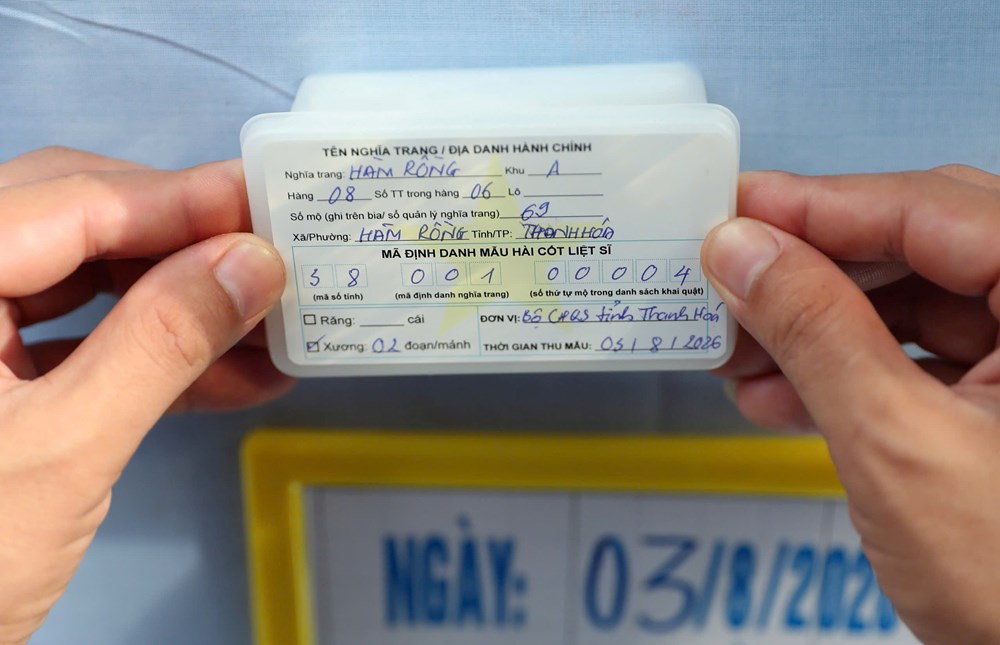 TÊN NGHĨA TRANG / ĐỊA DANH HÀNH CHÍNH
Nghĩa trang: HÀM RỒNG Khu A
Hàng 08 Số TT trong hàng 06 Lô
Số mộ (ghi trên bia/ số quản lý nghĩa trang) 69
Xã/Phường: HÀM RỒNG Tỉnh/TP: THANH HÓA
MÃ ĐỊNH DANH MẪU HÀI CỐT LIỆT SĨ
38 001 00004
(mã số tỉnh) (mã định danh nghĩa trang) (số thứ tự mộ trong danh sách khai quật)
Răng: cái ĐƠN VỊ: Bộ CHQS tỉnh Thanh Hoá
Xương: 02 đoạn/mảnh THỜI GIAN THU MẪU: 03/8/2026
NGÀY: 03/8/202